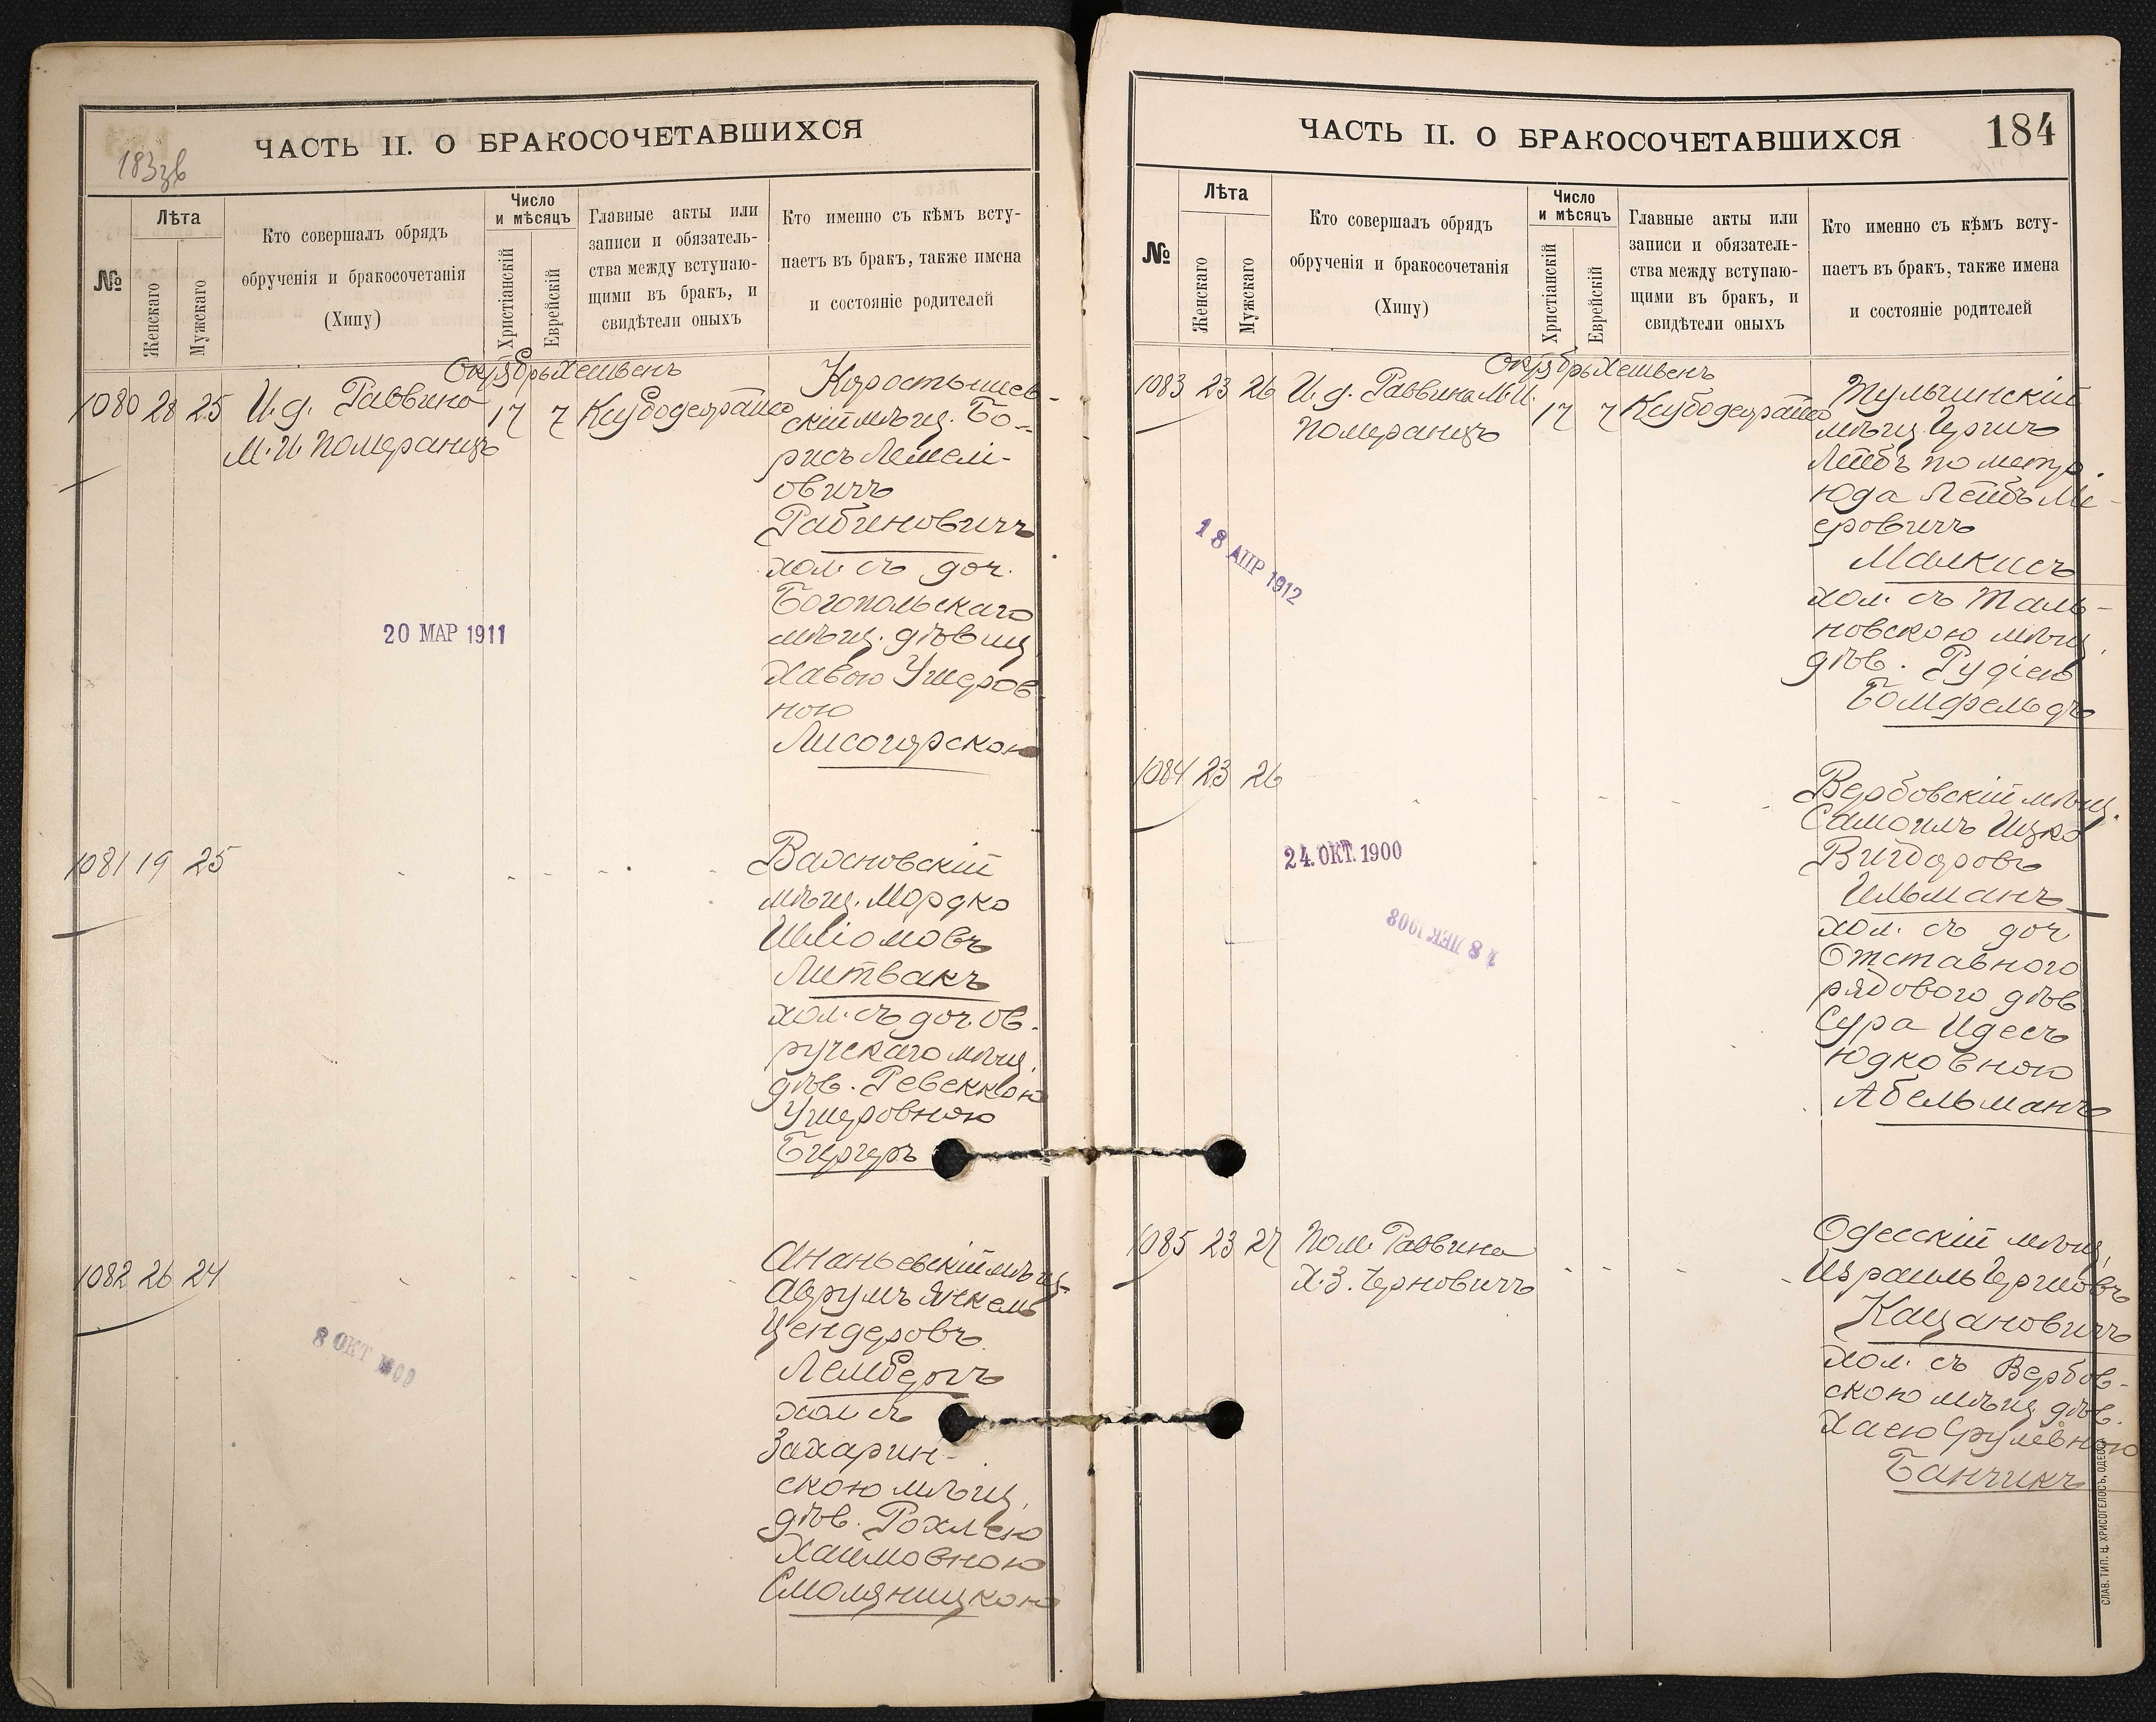 ЧАСТЬ II. О БРАКОСОЧЕТАВШИХСЯ
183зв
№
Лѣта
Женскаго
Мужскаго
Кто совершалъ обрядъ
обрученія и бракосочетанія
(Хипу)
Число
и мѣсяцъ
Христіанскій
Еврейскій
Главные акты или
записи и обязатель-
ства между вступаю-
щими въ бракъ, и
свидѣтели оныхъ
Кто именно съ кѣмъ всту-
паетъ въ бракъ, также имена
и состояніе родителей
Октябрь Хешвенъ
1080 28 25 И.д. Раввина
М.И. Померанцъ
17 7
Коростышев-
скій мѣщ. Бо-
рисъ Лемелі-
овичъ
Рабиновичъ
хол. съ доч.
Богопольскаго
мѣщ. дѣвиц
Хавою Ушеров-
ною
Лисогорскою
20 МАР 1911
1081 19 25
Вахновскій
мѣщ. Мордко
Шліомовъ
Литвакъ
хол. съ доч. Ов-
ручскаго мѣщ.
дѣв. Ревеккою
Ушеровною
Бергеръ
1082 26 24
Ананьевскій мѣщ.
Аврумъ Янкель
Цендеровъ
Лембергъ
хол съ
Захарин-
скою мѣщ.
дѣв. Рохлею
Хаимовною
Смоляницкою
8 ОКТ 1909
ЧАСТЬ II. О БРАКОСОЧЕТАВШИХСЯ
184
№
Лѣта
Женскаго
Мужскаго
Кто совершалъ обрядъ
обрученія и бракосочетанія
(Хипу)
Число
и мѣсяцъ
Христіанскій
Еврейскій
Главные акты или
записи и обязатель-
ства между вступаю-
щими въ бракъ, и
свидѣтели оныхъ
Кто именно съ кѣмъ всту-
паетъ въ бракъ, также имена
и состояніе родителей
Октябрь Хешвенъ
1083 23 26 И.д. Раввина М.И.
Померанцъ
17 7
Тульчинскій
мѣщ. Гершъ
Лейбъ по метр.
Юда Лейбъ Ме-
еровичъ
Малкисъ
хол. съ Таль-
новскою мѣщ.
дѣв. Рудіею
Бомфельдъ
18 АПР 1912
1084 23 26
Вербовскій мѣщ.
Самоилъ Ицко
Вигдоровъ
Ильманъ
хол. съ доч
Отставного
рядового дѣв
Сура Идесъ
Юдковною
Абельманъ
24. ОКТ. 1900
18 ДЕК 1908
1085 23 27 Пом. Раввина
Х.З. Черновичъ
Одесскій мѣщ.
Израиль Гершовъ
Кацановичъ
хол. съ Вербов-
скою мѣщ. дѣв.
Хаею Срулевною
Банчикъ
СЛАВ. ТИП. Н. ХРИСОГЕЛОСЪ, ОДЕССА